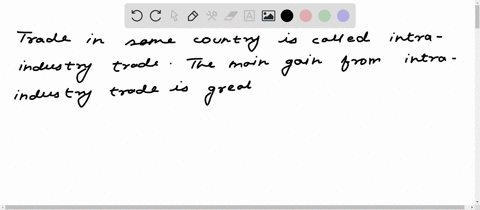 Trade in same country is called intra-
industry trade. The main gain from intra-
industry trade is great